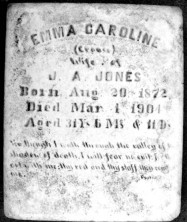 EMMA CAROLINE
Wife of
J. A. JONES
Born Aug 20 1872
Died Mar 4 1904
Aged 31Y 6 Ms & 11 Ds
though I walk through the valley of
shadow of death, I will fear no evil
art with me thy rod and thy staff they